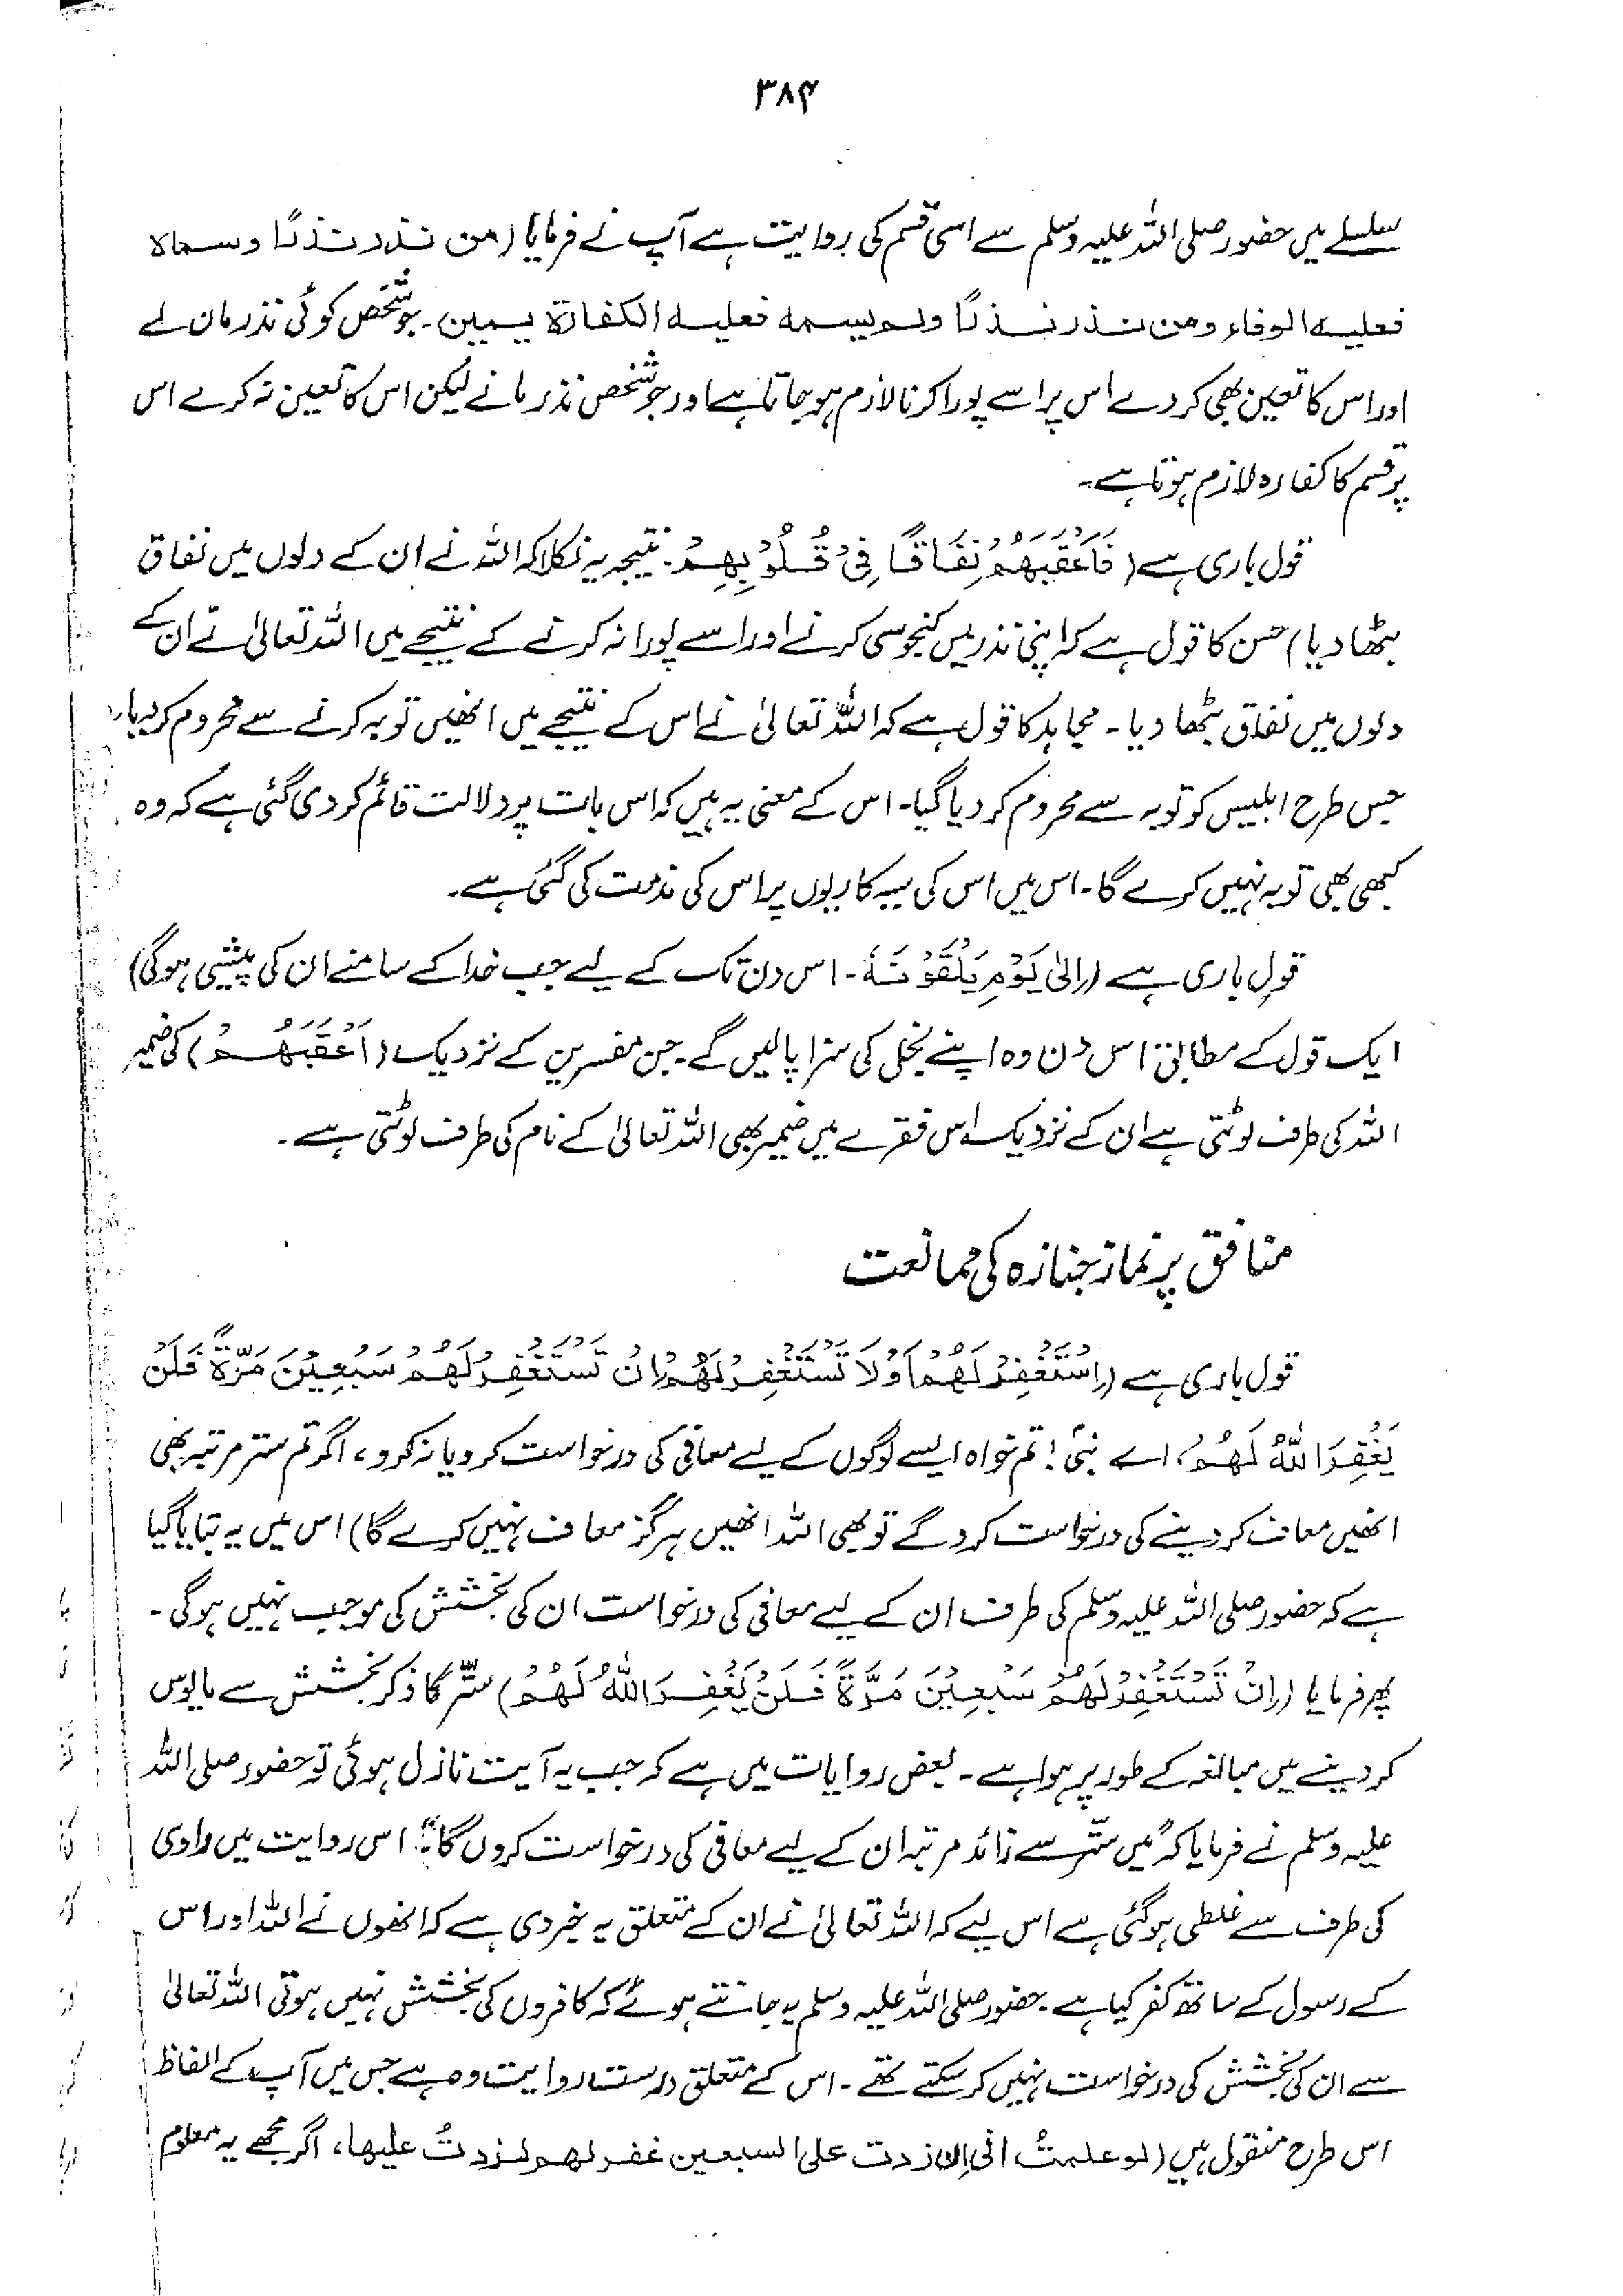 ۳۸۴
سلسلے میں حضور صلی اللہ علیہ وسلم سے اسی قسم کی روایت ہے آپ نے فرمایا (من نذر نذرًا وسماه
فعليه الوفاء ومن نذر نذرًا ولم يسمه فعليه الكفارة يمين۔ جو شخص کوئی نذر مان لے
اور اس کا تعین بھی کر دے اس پر اسے پورا کرنا لازم ہو جاتا ہے اور جو شخص نذر مانے لیکن اس کا تعین نہ کرے اس
پر قسم کا کفارہ لازم ہوتا ہے۔
قول باری ہے (فَاَعْقَبَهُمْ نِفَاقًا فِیْ قُلُوْبِهِمْ۔ نتیجہ یہ نکلا کہ اللہ نے ان کے دلوں میں نفاق
بٹھا دیا) حسن کا قول ہے کہ اپنی نذر میں کنجوسی کرنے اور اسے پورا نہ کرنے کے نتیجے میں اللہ تعالیٰ نے ان کے
دلوں میں نفاق بٹھا دیا۔ مجاہد کا قول ہے کہ اللہ تعالیٰ نے اس کے نتیجے میں انھیں توبہ کرنے سے محروم کر دیا۔
جس طرح ابلیس کو توبہ سے محروم کر دیا گیا۔ اس کے معنی یہ ہیں کہ اس بات پر دلالت قائم کر دی گئی ہے کہ وہ
کبھی بھی توبہ نہیں کرے گا۔ اس میں اس کی سیہ کاریوں پر اس کی مذمت کی گئی ہے۔
قول باری ہے (اِلیٰ یَوْمِ یَلْقَوْنَهٗ۔ اس دن تک کے لیے جب خدا کے سامنے ان کی پیشی ہوگی)
ایک قول کے مطابق اس دن وہ اپنے بخل کی سزا پالیں گے۔ جن مفسرین کے نزدیک (اَعْقَبَهُمْ) کی ضمیر
اللہ کی طرف لوٹتی ہے ان کے نزدیک اس فقرے میں ضمیر بھی اللہ تعالیٰ کے نام کی طرف لوٹتی ہے۔
منافق پر نماز جنازہ کی ممانعت
قول باری ہے (اِسْتَغْفِرْ لَهُمْ اَوْ لَا تَسْتَغْفِرْ لَهُمْ اِنْ تَسْتَغْفِرْ لَهُمْ سَبْعِیْنَ مَرَّةً فَلَنْ
یَغْفِرَ اللّٰهُ لَهُمْ، اے نبیؐ! تم خواہ ایسے لوگوں کے لیے معافی کی درخواست کرو یا نہ کرو، اگر تم ستر مرتبہ بھی
انھیں معاف کر دینے کی درخواست کرو گے تو بھی اللہ انھیں ہرگز معاف نہیں کرے گا) اس میں یہ بتایا گیا
ہے کہ حضور صلی اللہ علیہ وسلم کی طرف ان کے لیے معافی کی درخواست ان کی بخشش کی موجب نہیں ہوگی۔
پھر فرمایا (اِنْ تَسْتَغْفِرْ لَهُمْ سَبْعِیْنَ مَرَّةً فَلَنْ یَغْفِرَ اللّٰهُ لَهُمْ) ستّر کا ذکر بخشش سے مایوس
کر دینے میں مبالغہ کے طور پر ہوا ہے۔ بعض روایات میں ہے کہ جب یہ آیت نازل ہوئی تو حضور صلی اللہ
علیہ وسلم نے فرمایا کہ "میں ستّر سے زائد مرتبہ ان کے لیے معافی کی درخواست کروں گا"۔ اس روایت میں راوی
کی طرف سے غلطی ہو گئی ہے اس لیے کہ اللہ تعالیٰ نے ان کے متعلق یہ خبر دی ہے کہ انھوں نے اللہ اور اس
کے رسول کے ساتھ کفر کیا ہے۔ حضور صلی اللہ علیہ وسلم یہ جانتے ہوئے کہ کافروں کی بخشش نہیں ہوتی اللہ تعالیٰ
سے ان کی بخشش کی درخواست نہیں کر سکتے تھے۔ اس کے متعلق درست روایت وہ ہے جس میں آپ کے الفاظ
اس طرح منقول ہیں (لو علمتُ انی ان زدت علی السبعین غفر لهم لزدتُ علیها، اگر مجھے یہ معلوم